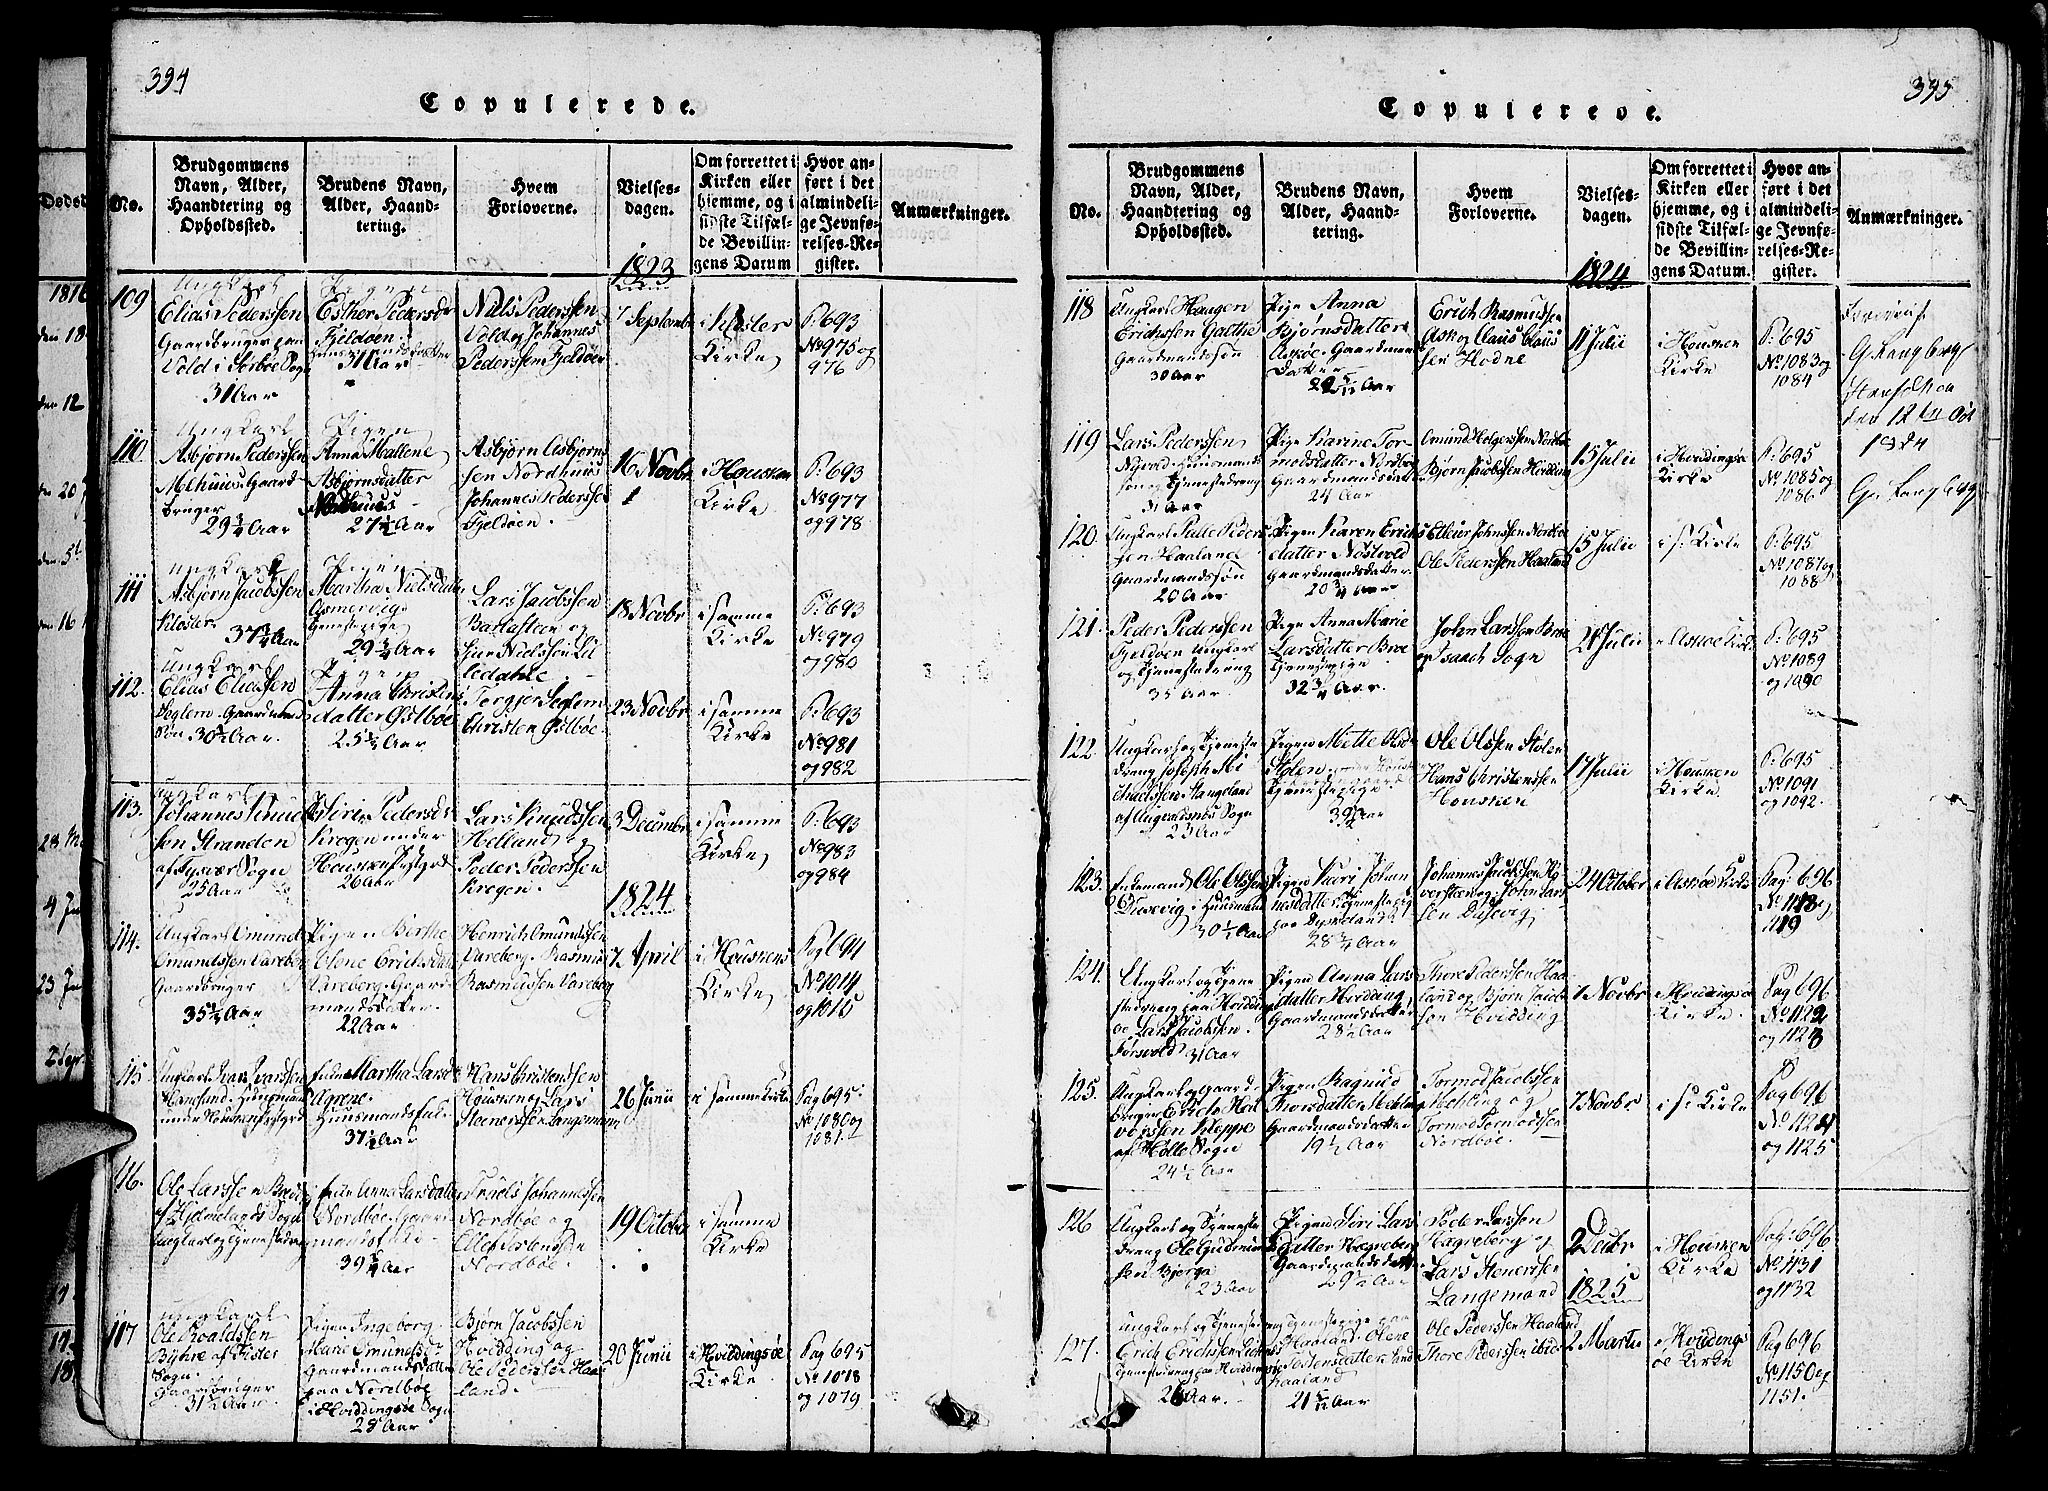 394
Copulerede.
No.
Brudgommens Navn, Alder, Haandtering og Opholdssted.
Brudens Navn, Alder, Haandtering.
Hvem Forloverne.
Vielsesdagen.
Om forrettet i Kirken eller hjemme, og i sidste Tilfælde Bevillingens Datum
Hvor anført i det almindelige Jevnførelses-Register.
Anmærkninger.
1823
109
Ungkarl
Elias Pederssen
Gaardbruger paa
Vold i Sørbøe Sogn
31 Aar
Pigen
Esther Pedersdr
Fjeldøen
31 Aar
Niels Pederssen
Vold og Johannes
Pederssen Fjeldøen
7 Septembr
i Kloster
Kirke
P: 693
No 975 og
976
110.
Ungkarl
Asbjørn Pederssen
Melhuus Gaard-
bruger
29 3/4 Aar
Pigen
Anna Mallene
Asbjørnsdatter
Nordhuus
27 1/2 Aar
Asbjørn Asbjørns
sen Nordhuus
Johannes Pederssen
Fjeldøen.
16 Novbr
i Housken
Kirke
P: 693
No 977
og 978.
111
Ungkarl
Asbjørn Jacobssen
Kloster
37 3/4 Aar
Pigen
Martha Nielsdatter
Asmervig
Tjenestepige
29 3/4 Aar
Lars Jacobssen
Bartasteen og
Siur Nielssen Lil-
ledahle
18 Novbr
i samme
Kirke
P: 693
No 979
og 980
112.
Ungkarl
Elias Eliassen
Seglem Gaardmands
Søn 30 1/2 Aar.
Pigen
Anna Christens
datter Østbøe
25 1/4 Aar
Tergier Seglem
Christen Østbøe.
23 Novbr
i samme
Kirke
P: 693
No 981
og 982
113.
Ungkarl
Johannes Knud
sen Stranden
af Tysvær Sogn
25 Aar
Siri Pedersdr
Krogen under
Housken Præstgrd
26 Aar
Lars Knudssen
Helland og
Peder Pederssen
Krogen.
3 Decembr
i samme
Kirke
P: 693
No 983
og 984
1824
114.
Ungkarl Omund
Omundssen Vareberg
Gaardbruger
35 1/4 Aar
Pigen Berthe
Olene Erichsdatter
Vareberg Gaard-
mandsdatter.
22 Aar
Henrich Omundssen
Vareberg Rasmus
Rasmussen Vareberg
7 April
i Houskens
Kirke
Pag 694
No 1014
og 1015
115
Ungkarl Lars Ivarssen
Hanesund Huusmand
under Housken Præstgrd
Enke Martha Larsdr
Agrene.
Huusmandsfolk.
37 1/2 Aar
Hans Christenssen
Housken og Lars
Steenerssen Langemann
26 Junii
i samme Kirke
Pag 695
No 1080 og
1081
116.
Ole Larssen
af Hjelmelands Sogn
Ungkarl og Tjenestedreng
Enke Anna Larsdatter
Nordbøe. Gaard-
39 3/4 Aar
Troels Johannessen
Nordbøe og
Nordbøe.
19 October
i samme
Kirke
117
Ungkarl
Ole Roaldssen
af Fister
Sogn.
Gaardbruger
31 1/2 Aar
Pigen Ingeborg
Marie Omundsdr
Gaardmandsdatter
paa Nordbøe
i Hviddingsøe Sogn
28 Aar
Bjørn Jacobssen
Hvidding og
Ole Pederssen Haa
land.
20 Junii
i Hviddingsøe
Kirke
Pag 695
No 1078
og 1079
395
Copulerede.
No.
Brudgommens Navn, Alder, Haandtering og Opholdssted.
Brudens Navn, Alder, Haandtering.
Hvem Forloverne.
Vielsesdagen.
Om forrettet i Kirken eller hjemme, og i sidste Tilfælde Bevillingens Datum.
Hvor anført i det almindelige Jevnførelses-Register.
Anmærkninger.
1824
118
Ungkarl Haagen
Erichssen Gaethe
Gaardmandssøn
30 Aar
Pige Anna
Bjørnsdatter
Askøe Gaardman
datter
29 5/12 Aar
Erich Rasmussen
Ask og Claus Claus
sen Hodne
11 Julii
i Housken
Kirke
P: 695
No 1083 og
1084
Foreviist
G Langberg
den 12te Oct
1824
Gr: Langberg
119
Lars Pederssen
Huusmands
søn og Tjenestedreng
31 Aar
Pige Karine Tor-
modsdatter Nordbøe
Gaardmandsdatter
24 Aar
Omund Helgerssen Nordbøe
Bjørn Jacobssen Hvidding
15 Julii
i Hviddingsøe
Kirke
P: 695
No 1085 og
1086
120.
Ungkarl Palle Peders
sen Haaland
Gaardmandssøn
20 Aar
Pigen Karen Erichs
datter Nøstvold
Gaardmandsdatter.
20 3/4 Aar
Etleiv Johnssen Nordbøe
Ole Pederssen Haaland
15 Julii
i s: Kirke
P: 695
No 1087 og
1088
121.
Peder Pederssen
Fjeldøen Ungkarl
og Tjenestedreng
35 Aar
Pige Anna Marie
Larsdatter Broe
Tjenestepige
32 3/4 Aar.
John Larssen Broe
og Isaach Sogn
21 Julii
i Askøe Kirke
P: 695
No 1089
og 1090
122.
Ungkarl og Tjeneste
dreng Joseph Mi
chaelssen Stangeland
af Augvaldsnes Sogn
23 Aar
Pigen Mette Olsdr
Stølen
Tjenestepige
39 1/2 Aar
Ole Olssen Stølen
Hans Christenssen
Housken
17 Julii
i Housken
Kirke
P: 695
No 1091
og 1092.
123.
Enkemand Ole Olssen
Dusevig i Huusmand
30 1/2 Aar
Pigen Kari Johan
nesdatter Tjenestepige
28 3/4 Aar
Johannes Jacobssen
og John Lars
sen Dusevig
24 October
i Askøe Kirke
Pag: 696
No 1118 og
1119
124.
Ungkarl og Tjene
stedreng paa Hvidding
øe Lars Jacobssen
Førsvold 31 Aar
Pigen Anna Lars
datter Hvidding
Gaardmandsdatter
28 1/2 Aar
Thore Pederssen Haa-
land og Bjørn Jacob-
sen Hvidding
7 Novbr
i Hviddingsøe
Kirke.
Pag 696
No 1122
og 1123
125.
Ungkarl og Gaard-
bruger Erich Hal
vorssen Kleppe
af Holle Sogn
24 1/2 Aar
Pigen Ragnild
Thorsdatter Mehling
Gaardmandsdatter
19 1/2 Aar
Tormod Jacobssen
Mehling og
Tormod Tormodssen
Nordbøe
7 Novbr
i s: Kirke
Pag 696
No 1124
og 1125
126
Ungkarl og Tjeneste
dreng Ole Gudmun
sen Bjerga
23 Aar
Pigen Siri Lars
datter Hægreberg
Gaardmandsdatter
29 1/2 Aar
Peder Larssen
Hægreberg og
Lars Stenerssen
Langemand
2 Decbr
i Housken
Kirke
Pag: 696
No 1131
og 1132
1825
127.
Ungkarl og Tjenestedreng
Erich Erichssen
Tjenestedreng paa Hviddingsøe
26 Aar.
Tjenestepige paa
Haaland Olene
Tostensdatter
Haaland
21 5/12 Aar
Ole Pederssen Haaland
Thore Pederssen ibid
2 Martii
i Hviddings
øe Kirke
Pag 696
No 1150 og
1151.